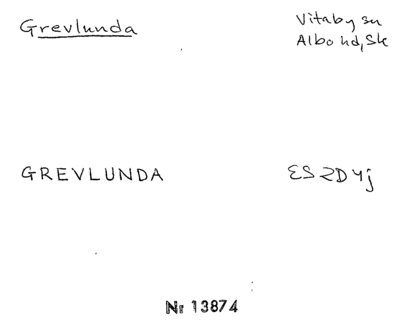 Grevlunda
Vitaby sn
Albo hd, Sk
GREVLUNDA
ES 2D 4j
Nr 13874